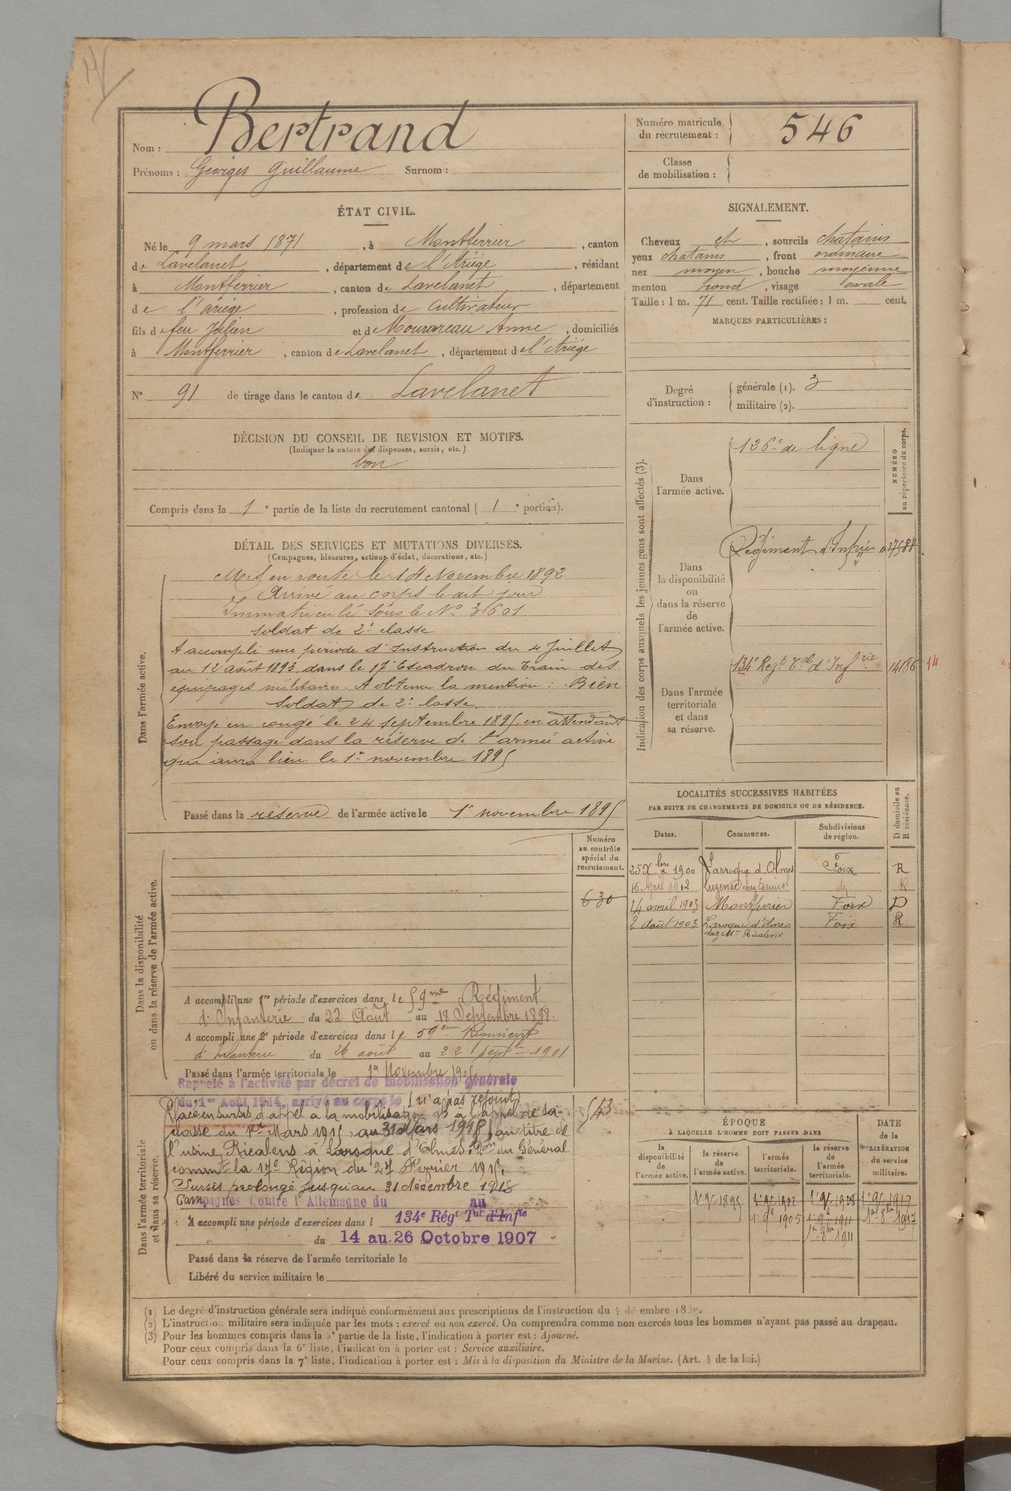 Nom : Bertrand
Prénoms : Georges Guillaume Surnom :
Numéro matricule du recrutement : 546
Classe de mobilisation :
ÉTAT CIVIL.
Né le 9 mars 1871, à Montferrier, canton
de Lavelanet, département de l'Ariège, résidant
à Montferrier, canton de Lavelanet, département
de l'Ariège, profession de Cultivateur
fils de feu Julien et de Anne, domiciliés
à Montferrier, canton de Lavelanet, département de l'Ariège
N° 91 de tirage dans le canton de Lavelanet
SIGNALEMENT.
Cheveux et, sourcils chatains
yeux chatains, front ordinaire
nez moyen, bouche moyenne
menton rond, visage ovale
Taille : 1 m. 71 cent. Taille rectifiée : 1 m. cent.
MARQUES PARTICULIÈRES :
Degré d'instruction : générale (1). 3
militaire (2).
DÉCISION DU CONSEIL DE REVISION ET MOTIFS.
(Indiquer la nature des dispenses, sursis, etc.)
bon
Compris dans la 1e partie de la liste du recrutement cantonal ( 1e portion).
DÉTAIL DES SERVICES ET MUTATIONS DIVERSES.
(Campagnes, blessures, actions d'éclat, décorations, etc.)
Dans l'armée active.
Mis en route le 14 Novembre 1892
Arrivé au corps le dit jour
Immatriculé sous le N° 3601
soldat de 2e classe
A accompli une période d'Instruction du 4 Juillet
au 12 août 1893 dans le 17e Escadron du Train des
équipages militaires. A obtenu la mention : Bien
Soldat de 2e classe
Envoyé en congé le 24 septembre 1895 en attendant
son passage dans la réserve de l'armée active
qui aura lieu le 1er novembre 1895
Passé dans la réserve de l'armée active le 1er novembre 1895
Indication des corps auxquels les jeunes gens sont affectés (3).
NUMÉRO au répertoire du corps.
Dans l'armée active.
126e de ligne
Dans la disponibilité ou dans la réserve de l'armée active.
Régiment d'Infrie
Dans l'armée territoriale et dans sa réserve.
134e Regt Tal d'Infrie
14186 14
LOCALITÉS SUCCESSIVES HABITÉES
PAR SUITE DE CHANGEMENTS DE DOMICILE OU DE RÉSIDENCE.
Dates. Communes. Subdivisions de région. D domicile ou R résidence.
25 Xbre 1900 Larroque d'Olmes Foix R
15 Avril 1902 Luzenac do R
14 avril 1903 Montferrier Foix D
2 août 1903 Laroque d'Olmes Foix R
chez Mr Ricalens
Dans la disponibilité ou dans la réserve de l'armée active.
Numéro au contrôle spécial du recrutement.
630
A accompli une 1re période d'exercices dans le 59me Régiment
d'Infanterie du 22 Août au 18 Septembre 1898
A accompli une 2e période d'exercices dans le 59ème Régiment
d'Infanterie du 26 août au 22 Septbre 1901
Passé dans l'armée territoriale le 1er Novembre 1905
Rappelé à l'activité par décret de mobilisation générale
du 1er Août 1914, arrivé au corps le (n'a pas rejoint)
Dans l'armée territoriale et dans sa réserve.
543
Placé en sursis d'appel à la mobilisation et à l'appel de sa
classe du 1er Mars 1915 au 31 Mars 1918, au titre de
l'usine Ricalens à Laroque d'Olmes. Don du Général
commt la 17e Région du 27 Février 1915
Sursis prolongé jusqu'au 31 décembre 1918
Campagnes Contre l'Allemagne du au
A accompli une période d'exercices dans l 134e Régt Tal d'Infie
du 14 au 26 Octobre 1907
Passé dans la réserve de l'armée territoriale le
Libéré du service militaire le
ÉPOQUE
À LAQUELLE L'HOMME DOIT PASSER DANS
DATE de la LIBÉRATION du service militaire.
la disponibilité de l'armée active. la réserve de l'armée active. l'armée territoriale. la réserve de l'armée territoriale.
1er 9bre 1895
1er 9bre 1905 1er 9bre 1911 1er 8bre 1917
1er 8bre 1911
(1) Le degré d'instruction générale sera indiqué conformément aux prescriptions de l'instruction du 4 décembre 1889.
(2) L'instruction militaire sera indiquée par les mots : exercé ou non exercé. On comprendra comme non exercés tous les hommes n'ayant pas passé au drapeau.
(3) Pour les hommes compris dans la 5e partie de la liste, l'indication à porter est : Ajourné.
Pour ceux compris dans la 6e liste, l'indication à porter est : Service auxiliaire.
Pour ceux compris dans la 7e liste, l'indication à porter est : Mis à la disposition du Ministre de la Marine. (Art. 4 de la loi.)